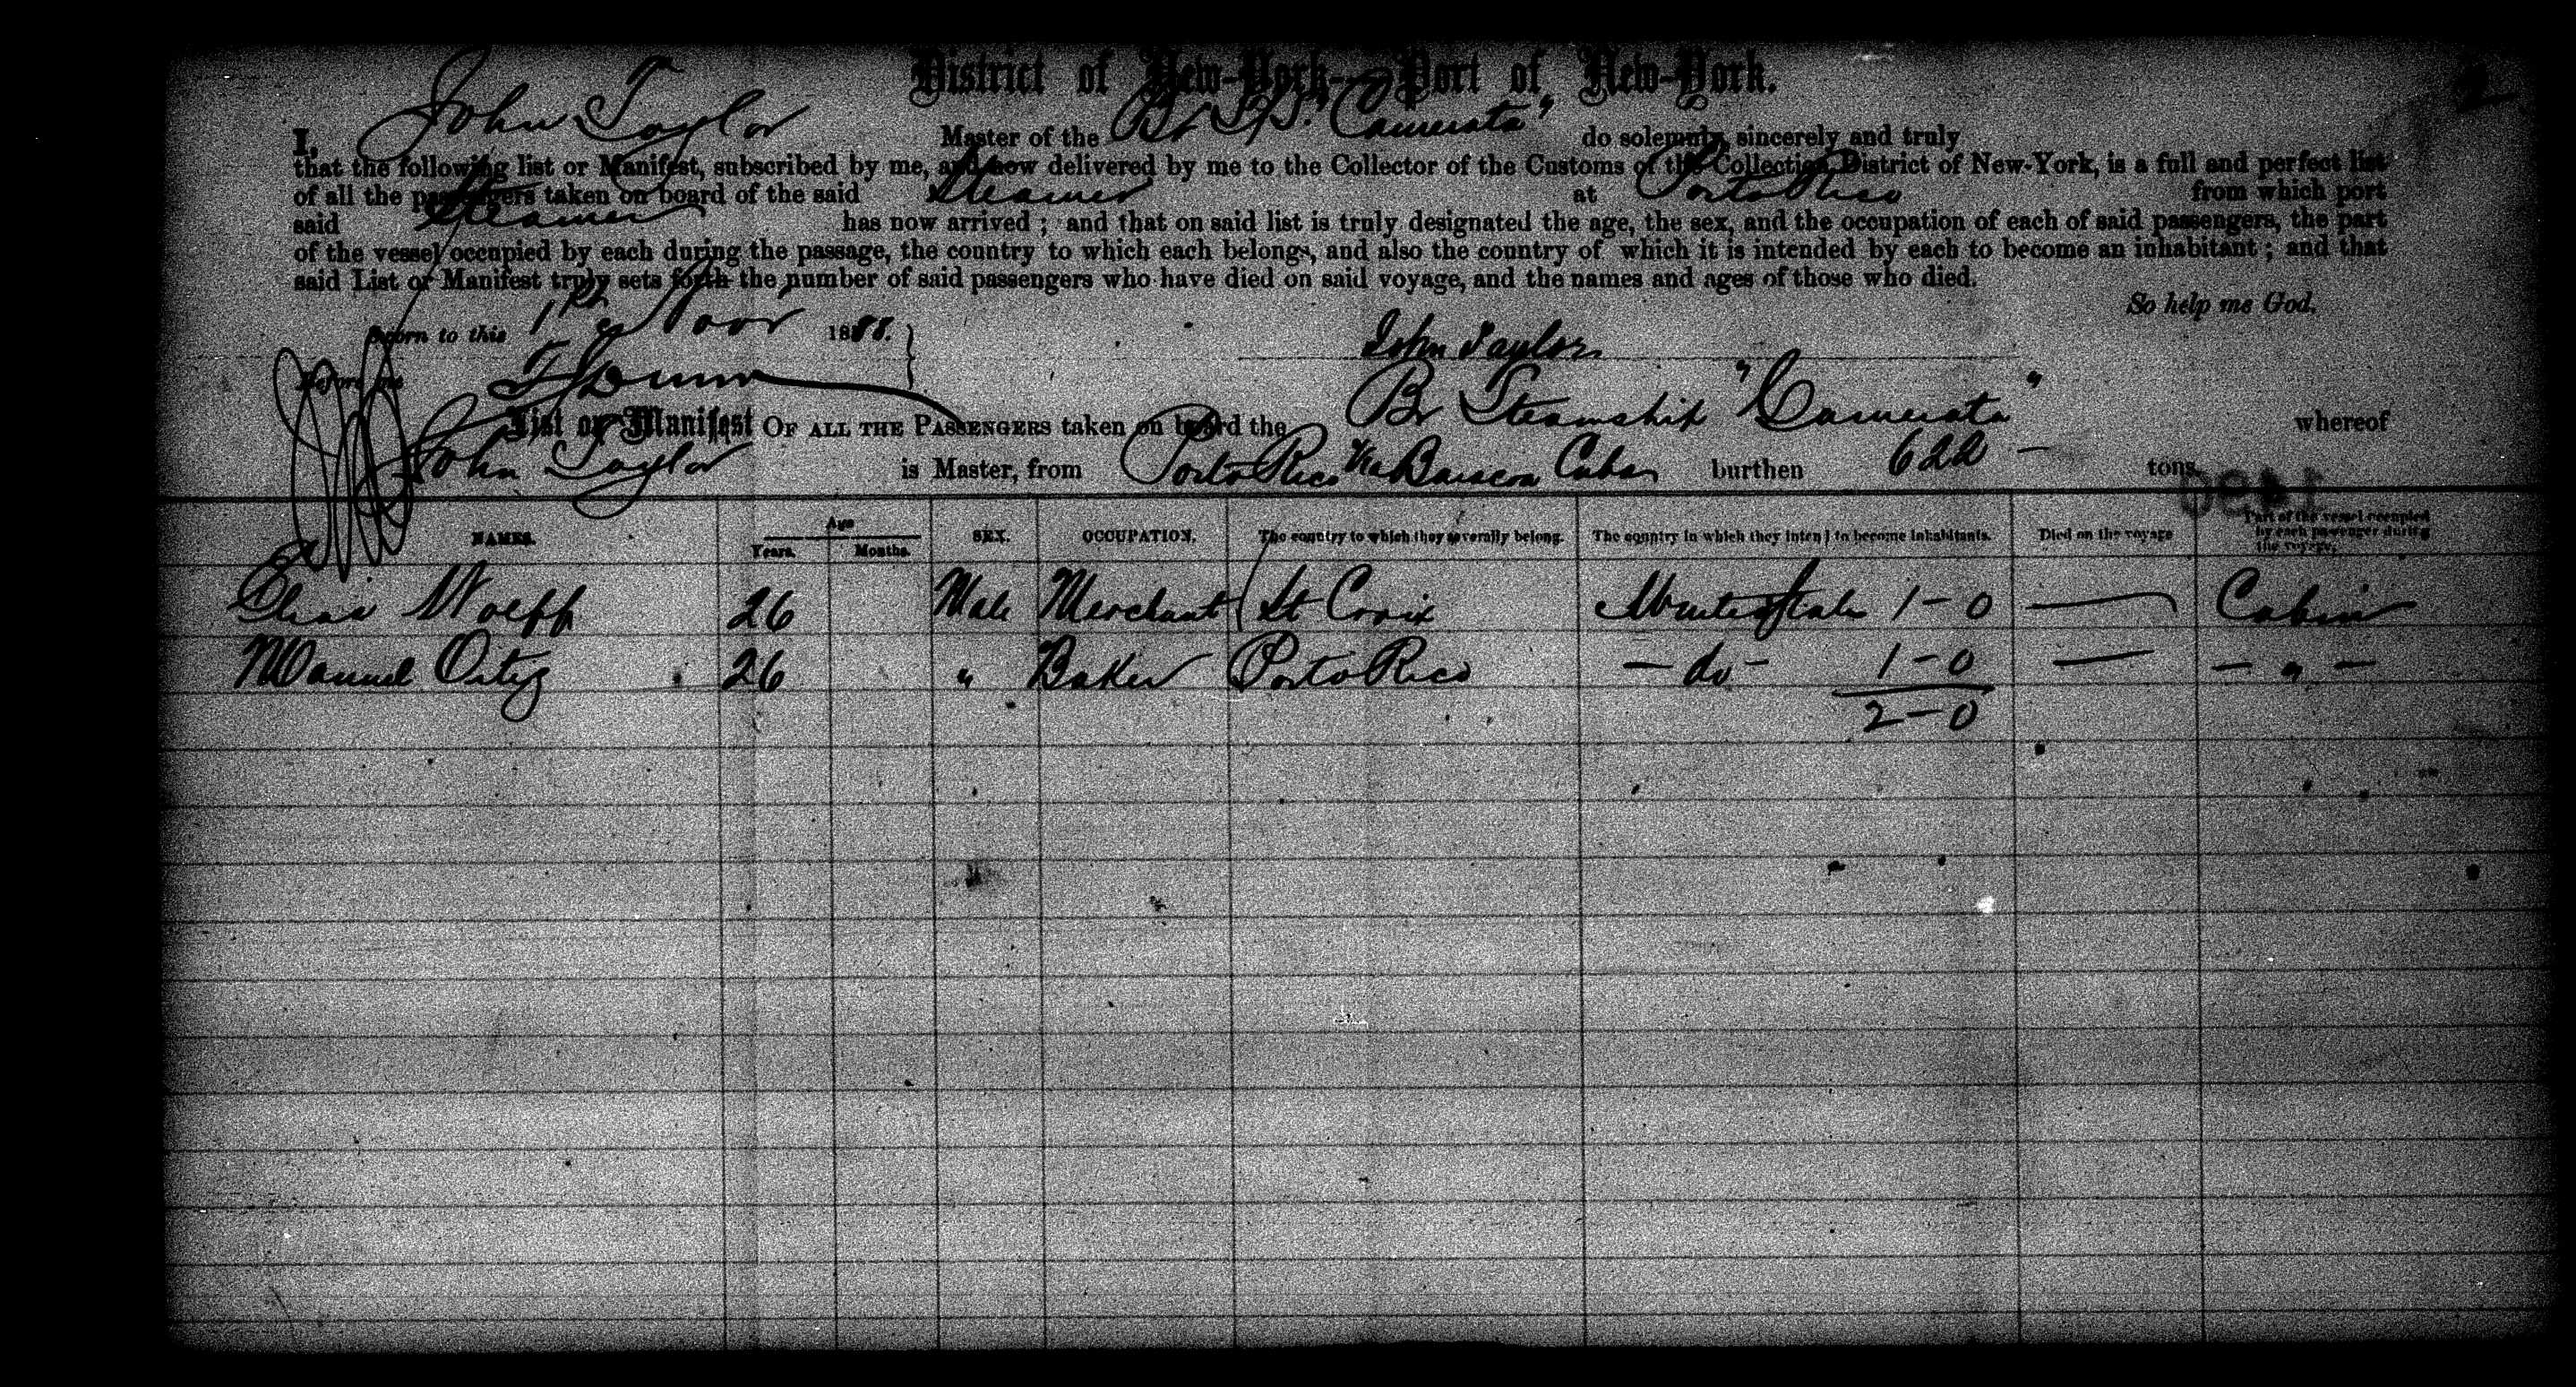 District of New-York—Port of New-York.
I, John Taylor Master of the Br SS. "Camerata" do solemnly, sincerely and truly
that the following list or Manifest, subscribed by me, and now delivered by me to the Collector of the Customs of the Collection District of New-York, is a full and perfect list
of all the passengers taken on board of the said Steamer at Porto Rico from which port
said Steamer has now arrived ; and that on said list is truly designated the age, the sex, and the occupation of each of said passengers, the part
of the vessel occupied by each during the passage, the country to which each belongs, and also the country of which it is intended by each to become an inhabitant ; and that
said List or Manifest truly sets forth the number of said passengers who have died on said voyage, and the names and ages of those who died.
So help me God.
Sworn to this 1st Novr 1888.
John Taylor
Before me
List or Manifest OF ALL THE PASSENGERS taken on board the Br Steamship "Camerata" whereof
John Taylor is Master, from Porto Rico via Baracoa Cuba burthen 622 — tons
NAMES. Age Years. Months. SEX. OCCUPATION. The country to which they severally belong. The country in which they intend to become inhabitants. Died on the voyage Part of the vessel occupied by each passenger during the voyage.
Elias Wolff 26 Male Merchant St Croix United States 1-0 — Cabin
Manuel Ortiz 26 " Baker Porto Rico - do - 1-0 — - " -
2-0